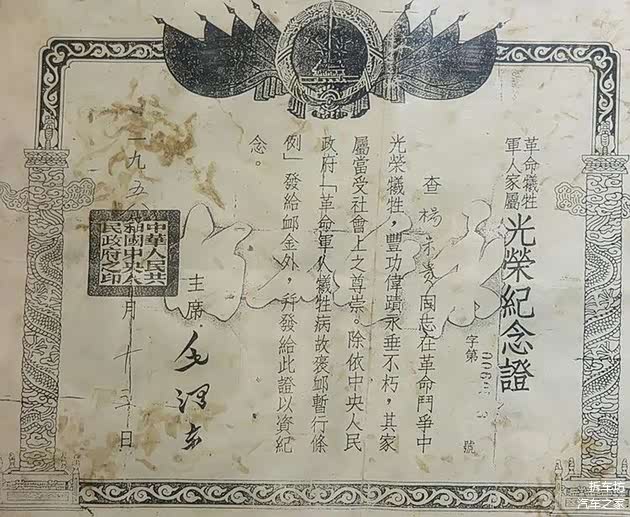 革命犧牲
軍人家屬
光榮紀念證
字第
號
查楊
同志在革命鬥爭中
光榮犧牲，豐功偉蹟永垂不朽，其家
屬當受社會上之尊崇。除依中央人民
政府「革命軍人犧牲病故褒卹暫行條
例」發給卹金外，幷發給此證以資紀
念。
主席
毛澤東
一九五
月十
日
中華人民共
和國中央人
民政府之印
拆车坊
汽车之家